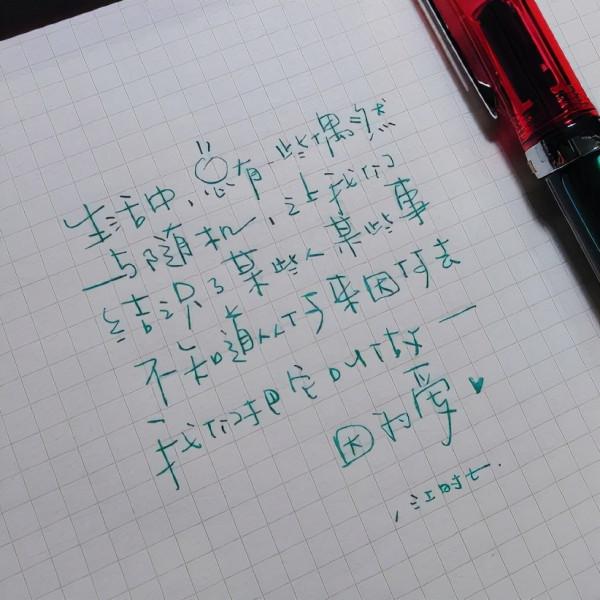 生活中，总有一些偶然
与随机，让我们
结识了某些人某些事
不知道从何来因何去
我们把它叫做一
因为爱
江时七.